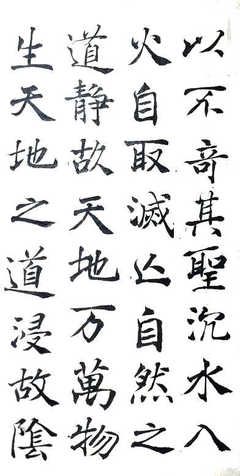 以不奇其聖沉水入
火自取滅亡自然之
道靜故天地万萬物
生天地之道浸故陰